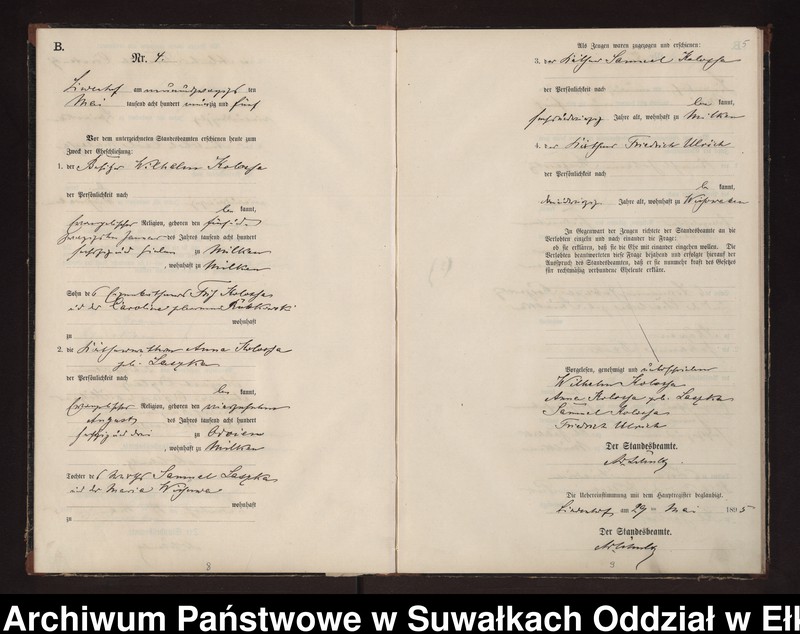 B.
Nr. 4.
am neunundzwanzigsten
Mai tausend acht hundert neunzig und fünf
Vor dem unterzeichneten Standesbeamten erschienen heute zum
Zweck der Eheschließung:
1. der Besitzer Wilhelm Kolossa
der Persönlichkeit nach
be kannt,
evangelischer Religion, geboren den fünfund
zwanzigsten Januar des Jahres tausend acht hundert
sechzig und sieben zu Milken
, wohnhaft zu Milken
Sohn des Fritz Kolossa
und der Caroline geborene
wohnhaft
zu
2. die Anna Kolossa
geb. Laszka
der Persönlichkeit nach
be kannt,
evangelischer Religion, geboren den vierzehnten
August des Jahres tausend acht hundert
sechzig und drei zu
, wohnhaft zu Milken
Tochter des Samuel Laszka
und der Maria
wohnhaft
zu
8
Als Zeugen waren zugezogen und erschienen:
3. der Käthner Samuel Kolossa
der Persönlichkeit nach
be kannt,
Jahre alt, wohnhaft zu Milken
4. der Käthner Friedrich Ulrich
der Persönlichkeit nach
be kannt,
Jahre alt, wohnhaft zu
In Gegenwart der Zeugen richtete der Standesbeamte an die
Verlobten einzeln und nach einander die Frage:
ob sie erklären, daß sie die Ehe mit einander eingehen wollen. Die
Verlobten beantworteten diese Frage bejahend und erfolgte hierauf der
Ausspruch des Standesbeamten, daß er sie nunmehr kraft des Gesetzes
für rechtmäßig verbundene Eheleute erkläre.
Vorgelesen, genehmigt und unterschrieben
Wilhelm Kolossa
Anna Kolossa geb. Laszka
Samuel Kolossa
Friedrich Ulrich
Der Standesbeamte.
Die Uebereinstimmung mit dem Hauptregister beglaubigt.
am 29ten Mai 1895
Der Standesbeamte.
Archiwum Państwowe w Suwałkach Oddział w Ełk